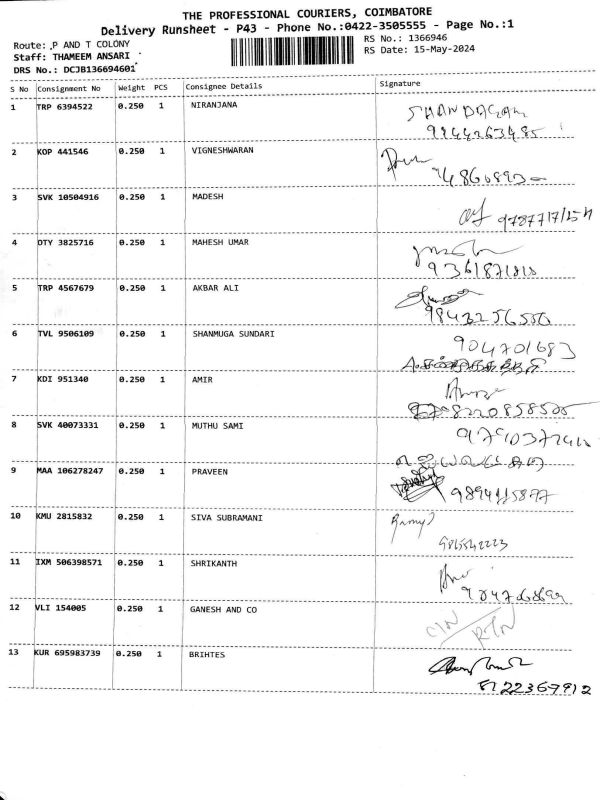 THE PROFESSIONAL COURIERS, COIMBATORE
Delivery Runsheet - P43 - Phone No.:0422-3505555 - Page No.:1
Route: P AND T COLONY
RS No.: 1366946
Staff: THAMEEM ANSARI
RS Date: 15-May-2024
DRS No.: DCJB136694601
S No Consignment No Weight PCS Consignee Details Signature
1 TRP 6394522 0.250 1 NIRANJANA
9944263485
2 KOP 441546 0.250 1 VIGNESHWARAN
3 SVK 10504916 0.250 1 MADESH
4 OTY 3825716 0.250 1 MAHESH UMAR
5 TRP 4567679 0.250 1 AKBAR ALI
9843256550
6 TVL 9506109 0.250 1 SHANMUGA SUNDARI
904701683
7 KDI 951340 0.250 1 AMIR
8220858505
8 SVK 40073331 0.250 1 MUTHU SAMI
9 MAA 106278247 0.250 1 PRAVEEN
9894115877
10 KMU 2815832 0.250 1 SIVA SUBRAMANI
11 IXM 506398571 0.250 1 SHRIKANTH
12 VLI 154005 0.250 1 GANESH AND CO
RTN
13 KUR 695983739 0.250 1 BRIHTES
8122367912